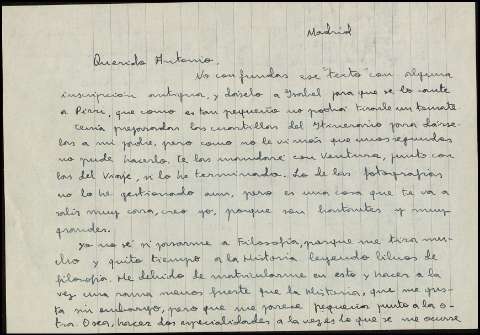 Madrid
Querido Antonio.
No confundas ese "texto" con alguna
inscripción antigua, y dáselo a Isabel para que se lo cante
a Pirri, que como es tan pequeño no podrá tirarle un tomate
Tenía preparadas las cuartillas del Itinerario para dárse-
las a mi padre, pero como no le vi más que unos segundos
no pude hacerlo. Te las mandaré con Ventura, junto con
las del viaje, si lo he terminado. Lo de las fotografías
no lo he gestionado aun, pero es una cosa que te va a
salir muy cara, creo yo, porque son bastantes y muy
grandes.
Yo no sé si pasarme a Filosofía, porque me tira mu-
cho y quito tiempo a la Historia leyendo libros de
filosofía. He decidido de matricularme en esto y hacer a la
vez una rama menos fuerte que la Historia, que me gus-
ta sin embargo, pero que me parece pequeña junto a la o-
tra. O sea, hacer dos especialidades a la vez es lo que se me ocurre